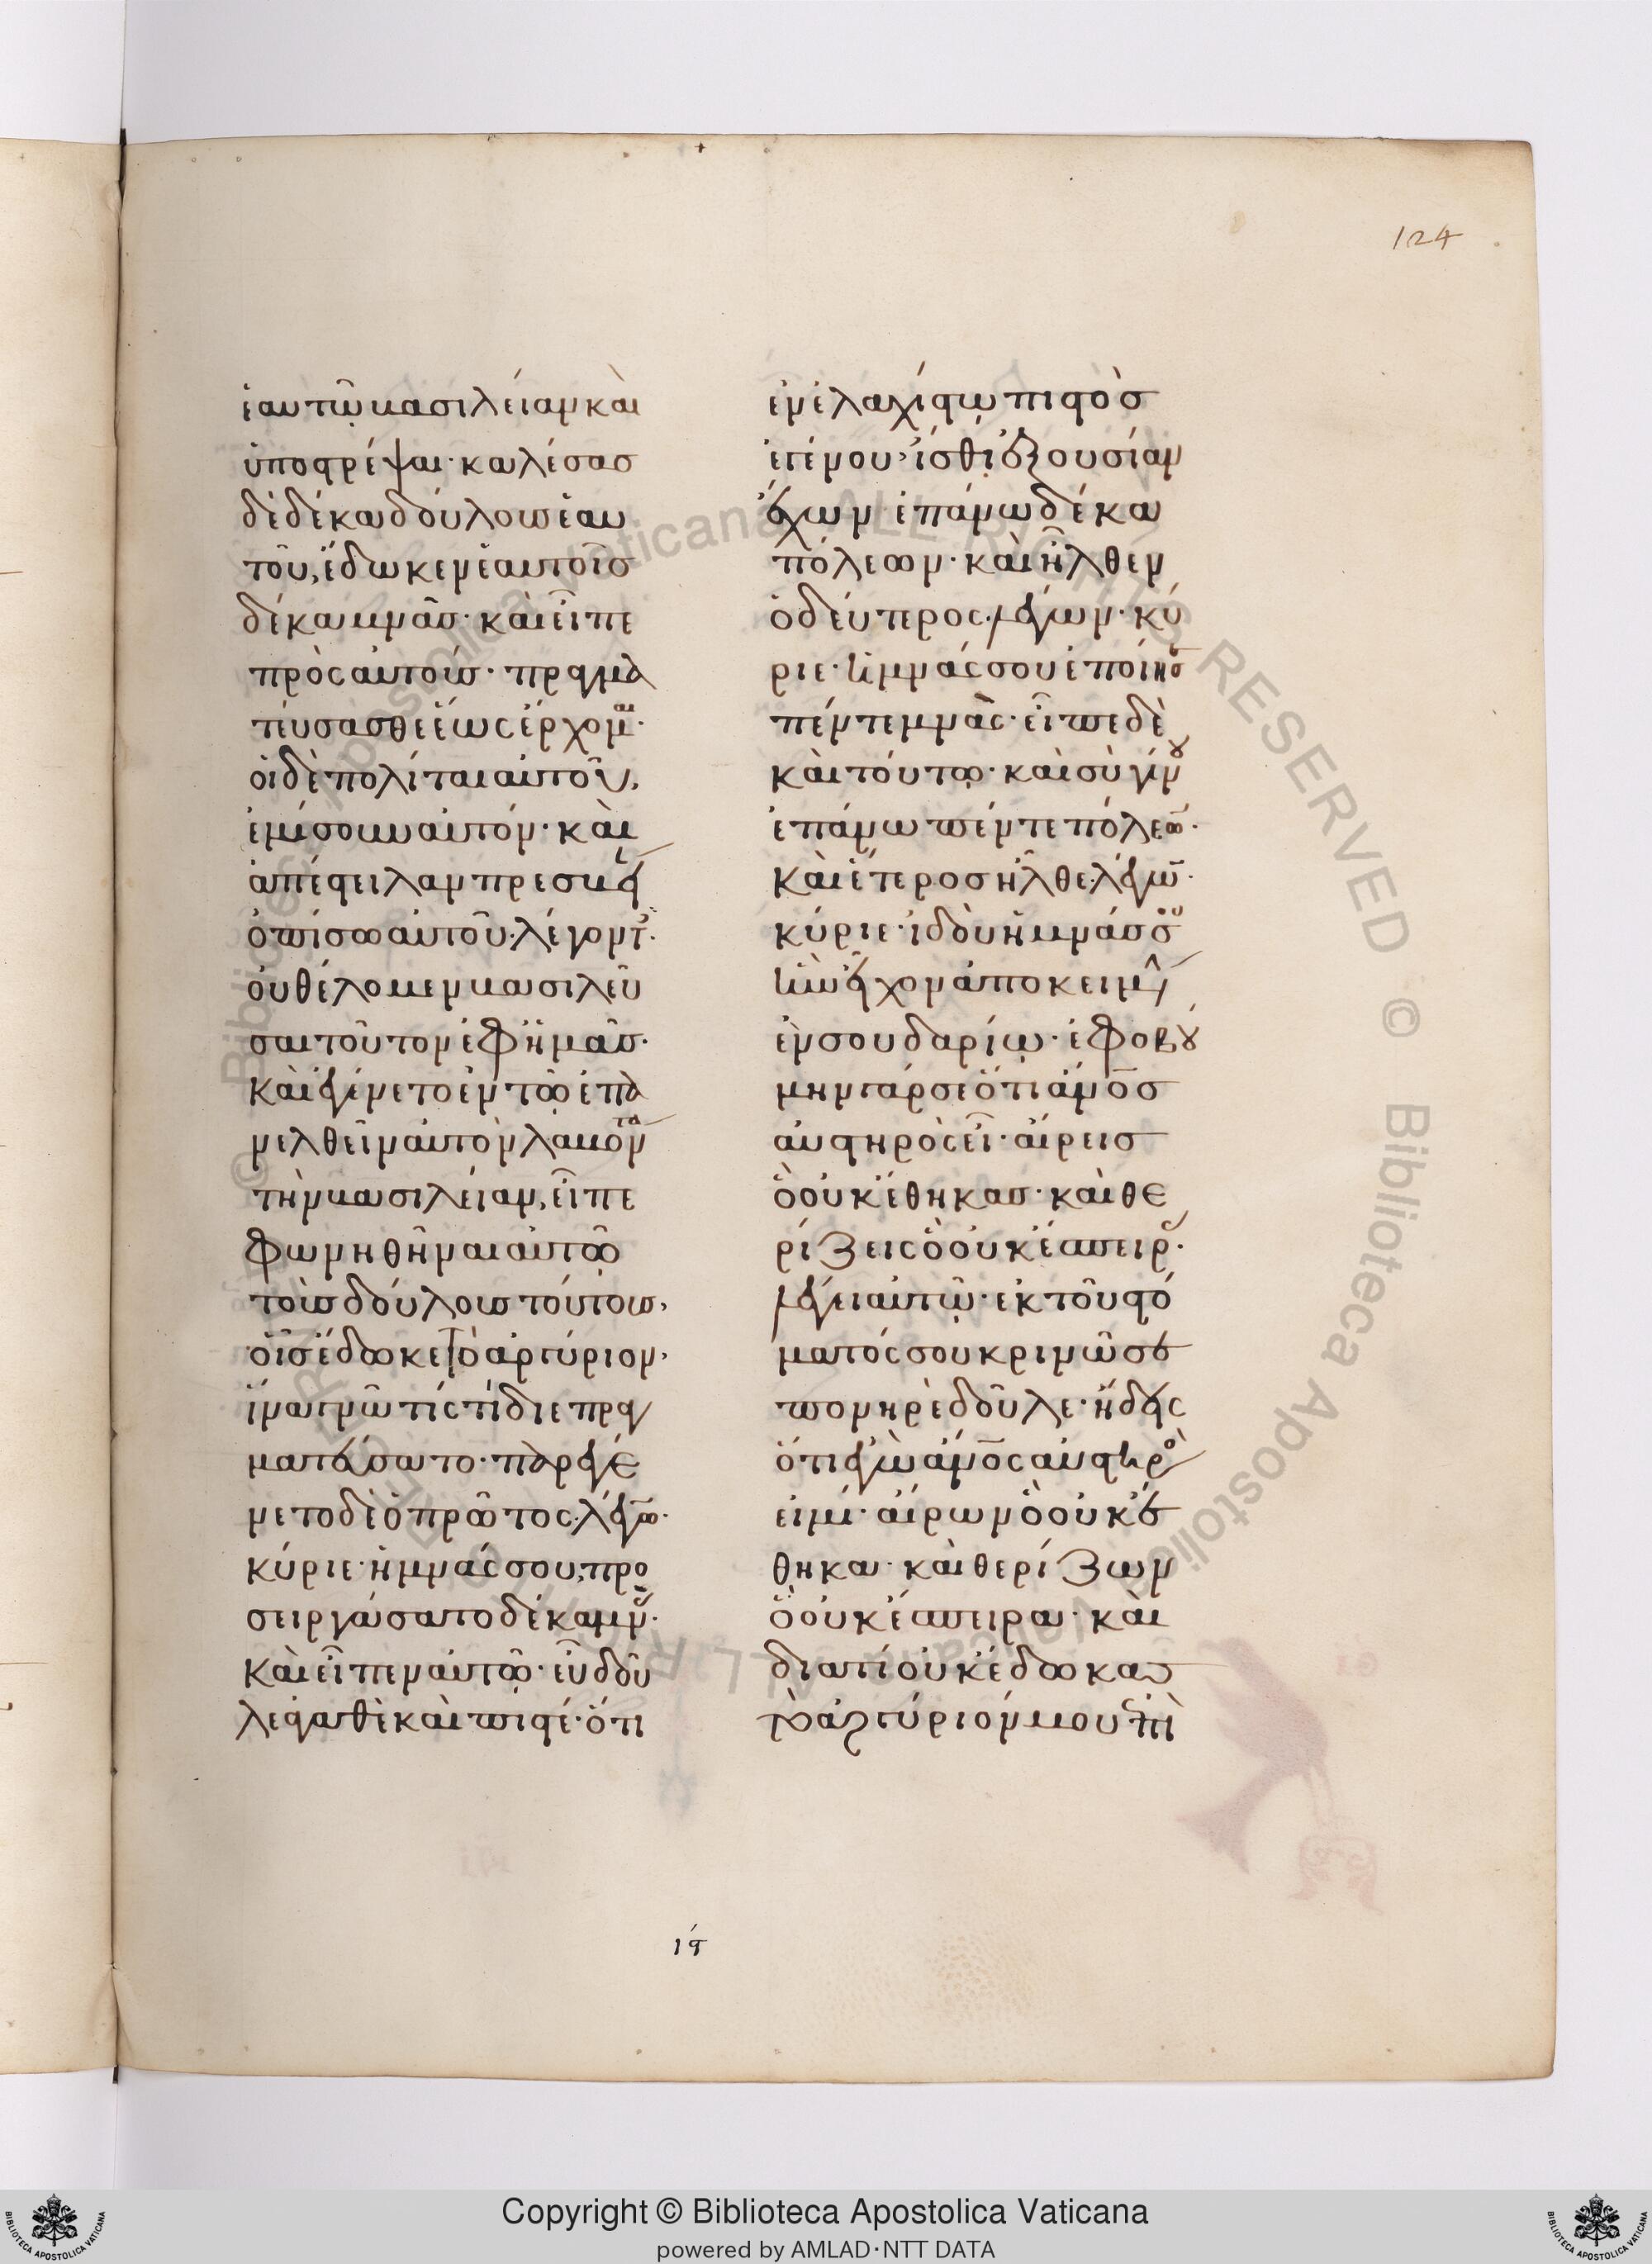 124
ἑαυτῶ βασιλείαν καὶ
ὑποστρέψαι· καλέσας
δὲ δέκα δούλους ἑαυ
τοῦ, ἔδωκεν ἑαυτοῖς
δέκα μνᾶς· καὶ εἶπε
πρὸς αὐτούς· πραγμα
τεύσασθε ἕως ἔρχομαι·
οἱ δὲ πολίται αὐτοῦ,
ἐμίσουν αὐτόν· καὶ
ἀπέστειλαν πρεσβεί
ὀπίσω αὐτοῦ· λέγοντες·
οὐ θέλομεν βασιλεῦ
σαι τοῦτον ἐφ ἡμᾶς·
Καὶ ἐγένετο ἐν τῶ ἐπα
νελθεῖν αὐτὸν λαβόντα
τὴν βασιλείαν, εἶπε
φωνηθῆναι αὐτῶ
τοὺς δούλους τούτους,
οἷς ἔδωκε τὸ ἀργύριον,
ἵνα γνῶ τίς τί διεπραγ
ματεύσατο· παρεγέ
νετο δὲ ὁ πρῶτος· λέγων·
κύριε· ἡ μνᾶ σου, προ
σειργάσατο δέκα μνᾶς·
Καὶ εἶπεν αὐτῶ· εὖ δοῦ
λε ἀγαθὲ καὶ πιστέ· ὅτι
ἐν ἐλαχίστω πιστὸς
ἐγένου· ἴσθι ἐξουσίαν
ἔχων ἐπάνω δέκα
πόλεων· καὶ ἦλθεν
ὁ δεύτερος· λέγων· κύ
ριε· ἡ μνᾶ σου ἐποίησε
πέντε μνᾶς· εἶπε δὲ
καὶ τούτω· καὶ σὺ γίνου
ἐπάνω πέντε πόλεων·
Καὶ ἕτερος ἦλθε· λέγων·
κύριε· ἰδοὺ ἡ μνᾶ σου
ἣν εἶχον ἀποκειμένην
ἐν σουδαρίω· ἐφοβού
μην γάρ σε ὅτι ἄνος
αὐστηρὸς εἶ· αἴρεις
ὃ οὐκ ἔθηκας· καὶ θε
ρίζεις ὃ οὐκ ἔσπειρας·
λέγει αὐτῶ· ἐκ τοῦ στό
ματός σου κρινῶ σε
πονηρὲ δοῦλε· ἤδεις
ὅτι ἐγὼ ἄνος αὐστηρὸς
εἰμι· αἴρων ὃ οὐκ ἔ
θηκα· καὶ θερίζων
ὃ οὐκ ἔσπειρα· καὶ
διατί οὐκ ἔδωκας
τὸ ἀργύριόν μου ἐπὶ
Copyright © Biblioteca Apostolica Vaticana
powered by AMLAD·NTT DATA